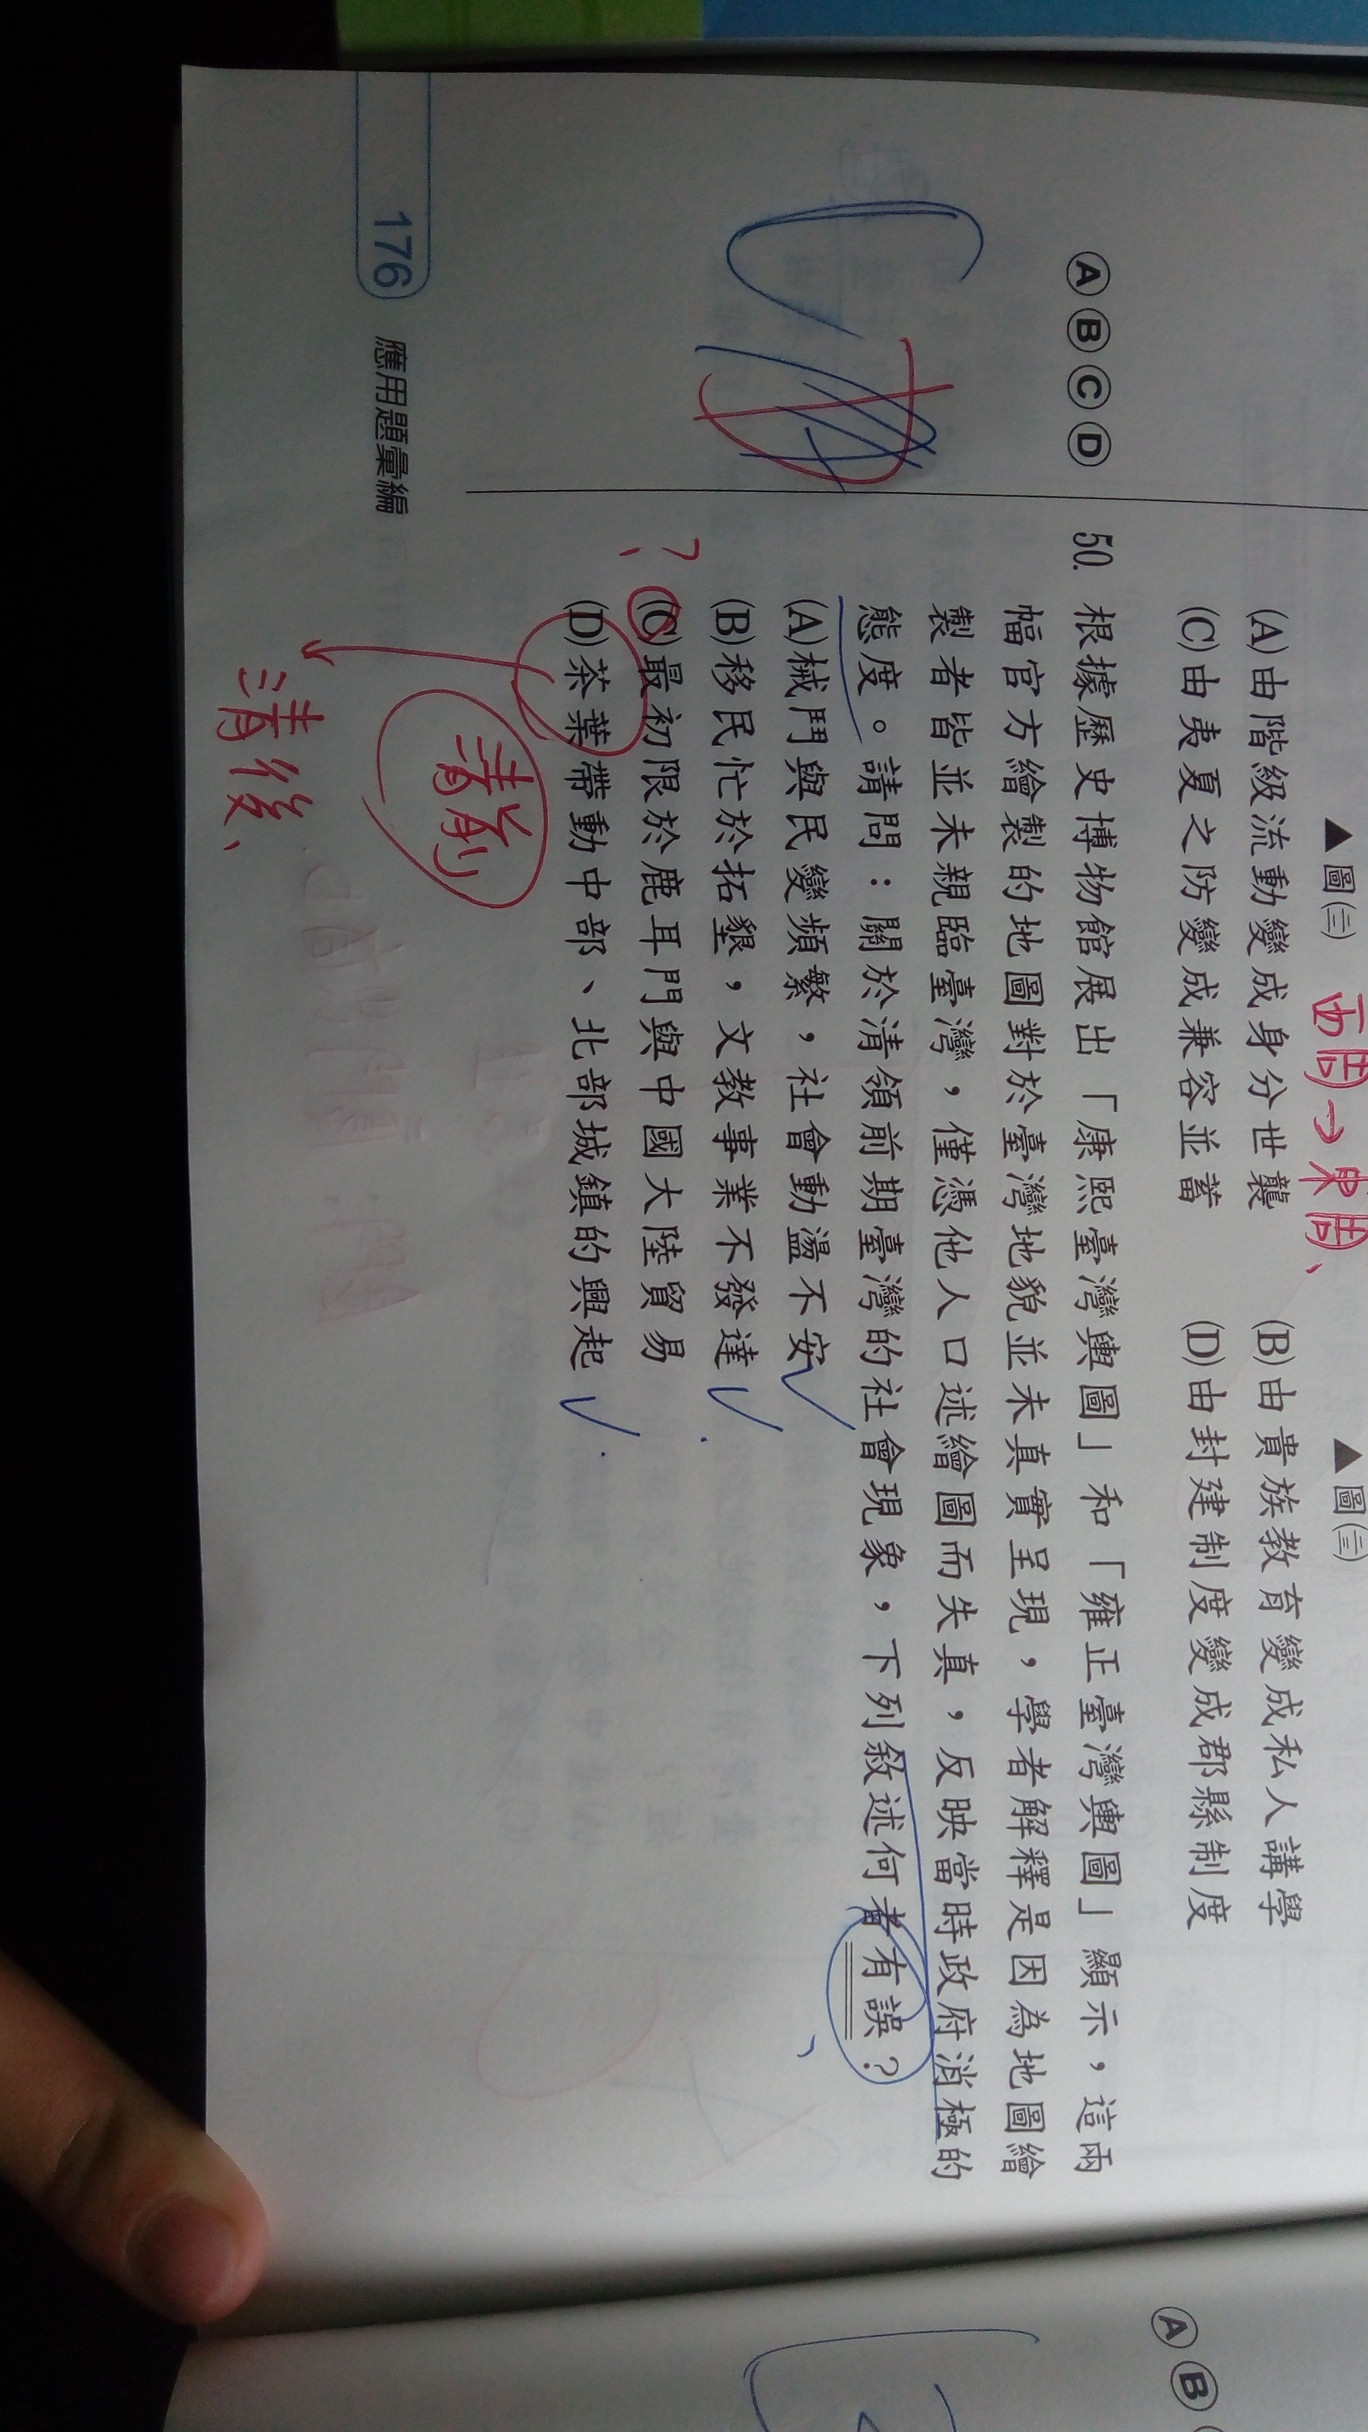 ▲圖㈡ 西周→東周、 ▲圖㈢
(A)由階級流動變成身分世襲 (B)由貴族教育變成私人講學
(C)由夷夏之防變成兼容並蓄 (D)由封建制度變成郡縣制度
ⒶⒷⒸⒹ 50. 根據歷史博物館展出「康熙臺灣輿圖」和「雍正臺灣輿圖」顯示，這兩
幅官方繪製的地圖對於臺灣地貌並未真實呈現，學者解釋是因為地圖繪
製者皆並未親臨臺灣，僅憑他人口述繪圖而失真，反映當時政府消極的
態度。請問：關於清領前期臺灣的社會現象，下列敘述何者有誤？
(A)械鬥與民變頻繁，社會動盪不安
(B)移民忙於拓墾，文教事業不發達
？(C)最初限於鹿耳門與中國大陸貿易
(D)茶葉帶動中部、北部城鎮的興起
清前
清後、
176 應用題彙編
Ⓐ Ⓑ